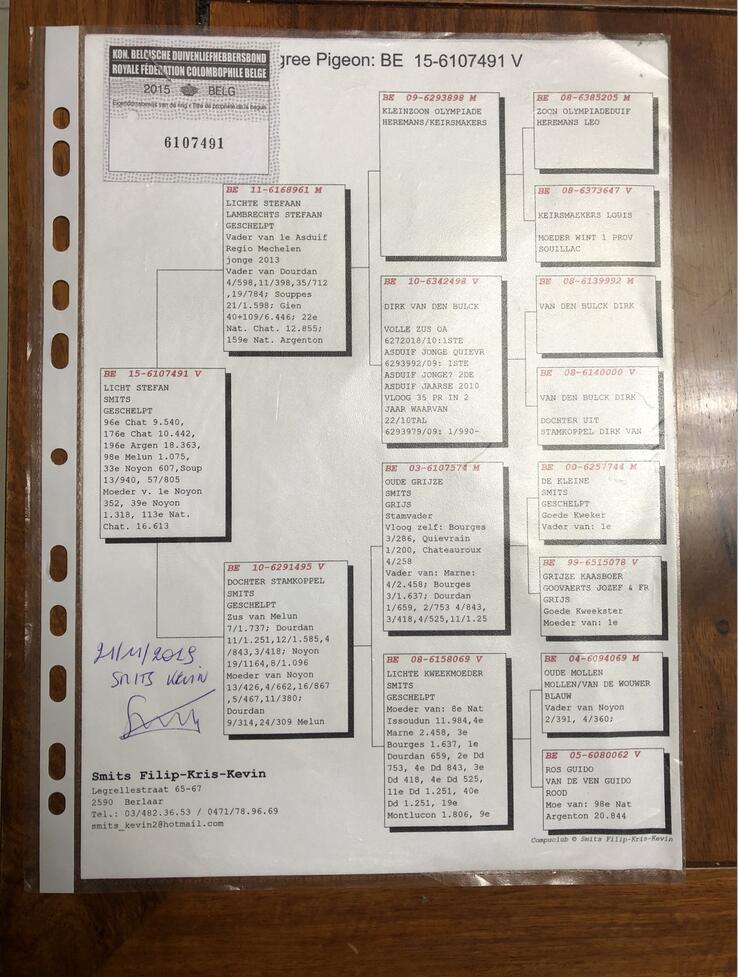 KON. BELGISCHE DUIVENLIEFHEBBERSBOND
ROYALE FÉDÉRATION COLOMBOPHILE BELGE
2015 BELG
6107491
gree Pigeon: BE 15-6107491 V
BE 15-6107491 V
LICHT STEFAN
SMITS
GESCHELPT
96e Chat 9.540,
176e Chat 10.442,
196e Argen 18.363,
98e Melun 1.075,
33e Noyon 607,Soup
13/940, 57/805
Moeder v. 1e Noyon
352, 39e Noyon
1.318, 113e Nat.
Chat. 16.613
BE 11-6168961 M
LICHTE STEFAAN
LAMBRECHTS STEFAAN
GESCHELPT
Vader van 1e Asduif
Regio Mechelen
jonge 2013
Vader van Dourdan
4/598,11/398,35/712
,19/784; Souppes
21/1.598; Gien
40+109/6.446; 22e
Nat. Chat. 12.855;
159e Nat. Argenton
BE 10-6291495 V
DOCHTER STAMKOPPEL
SMITS
GESCHELPT
Zus van Melun
7/1.737; Dourdan
11/1.251,12/1.585,4
/843,3/418; Noyon
19/1164,8/1.096
Moeder van Noyon
13/426,4/662,16/867
,5/467,11/380;
Dourdan
9/314,24/309 Melun
BE 09-6293898 M
KLEINZOON OLYMPIADE
HEREMANS/KEIRSMAKERS
BE 10-6342498 V
DIRK VAN DEN BULCK
VOLLE ZUS OA
6272018/10:1STE
ASDUIF JONGE QUIEVR
6293992/09: 1STE
ASDUIF JONGE? 2DE
ASDUIF JAARSE 2010
VLOOG 35 PR IN 2
JAAR WAARVAN
22/10TAL
6293979/09: 1/990-
BE 03-6107574 M
OUDE GRIJZE
SMITS
GRIJS
Stamvader
Vloog zelf: Bourges
3/286, Quievrain
1/200, Chateauroux
4/258
Vader van: Marne:
4/2.458; Bourges
3/1.637; Dourdan
1/659, 2/753 4/843,
3/418,4/525,11/1.25
BE 08-6158069 V
LICHTE KWEEKMOEDER
SMITS
GESCHELPT
Moeder van: 8e Nat
Issoudun 11.984,4e
Marne 2.458, 3e
Bourges 1.637, 1e
Dourdan 659, 2e Dd
753, 4e Dd 843, 3e
Dd 418, 4e Dd 525,
11e Dd 1.251, 40e
Dd 1.251, 19e
Montlucon 1.806, 9e
BE 08-6385205 M
ZOON OLYMPIADEDUIF
HEREMANS LEO
BE 08-6373647 V
KEIRSMAEKERS LOUIS
MOEDER WINT 1 PROV
SOUILLAC
BE 08-6139992 M
VAN DEN BULCK DIRK
BE 08-6140000 V
VAN DEN BULCK DIRK
DOCHTER UIT
STAMKOPPEL DIRK VAN
BE 00-6257744 M
DE KLEINE
SMITS
GESCHELPT
Goede Kweker
Vader van: 1e
BE 99-6515078 V
GRIJZE KAASBOER
GOOVAERTS JOZEF & FR
GRIJS
Goede Kweekster
Moeder van: 1e
BE 04-6094069 M
OUDE MOLLEN
MOLLEN/VAN DE WOUWER
BLAUW
Vader van Noyon
2/391, 4/360;
BE 05-6080062 V
ROS GUIDO
VAN DE VEN GUIDO
ROOD
Moe van: 98e Nat
Argenton 20.844
21/11/2019
SMITS KEVIN
Smits Filip-Kris-Kevin
Legrellestraat 65-67
2590 Berlaar
Tel.: 03/482.36.53 / 0471/78.96.69
smits_kevin2@hotmail.com
Compuclub © Smits Filip-Kris-Kevin